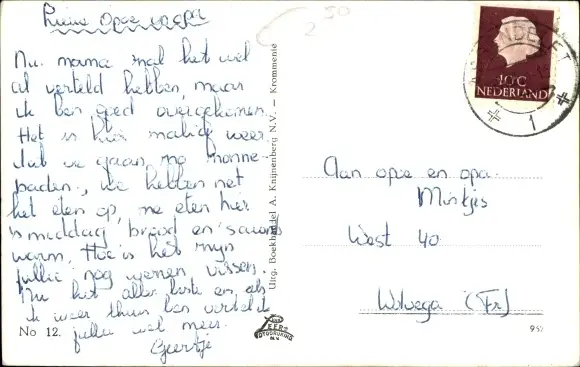 Lieve Opoe en opa
Nu mama zal het wel
al verteld hebben, maar
ik ben goed overgekomen.
Het is hier matig weer
dat we gaan, na
baden, we hebben net
het eten op, we eten hier
's middag brood en 's avonds
warm. Hoe is het mijn
jullie nog vissen.
Nu het aller beste en als
ik weer thuis ben vertel ik
jullie wel meer.
Geertje
No 12.
Uitg. Boekhandel A. Knijnenberg N.V. — Krommenie
250
10 C
NEDERLAND
1
Aan opoe en opa.
Mintjes
West 40
Wolvega (Fr)
FOTODRUKKING
N.V.